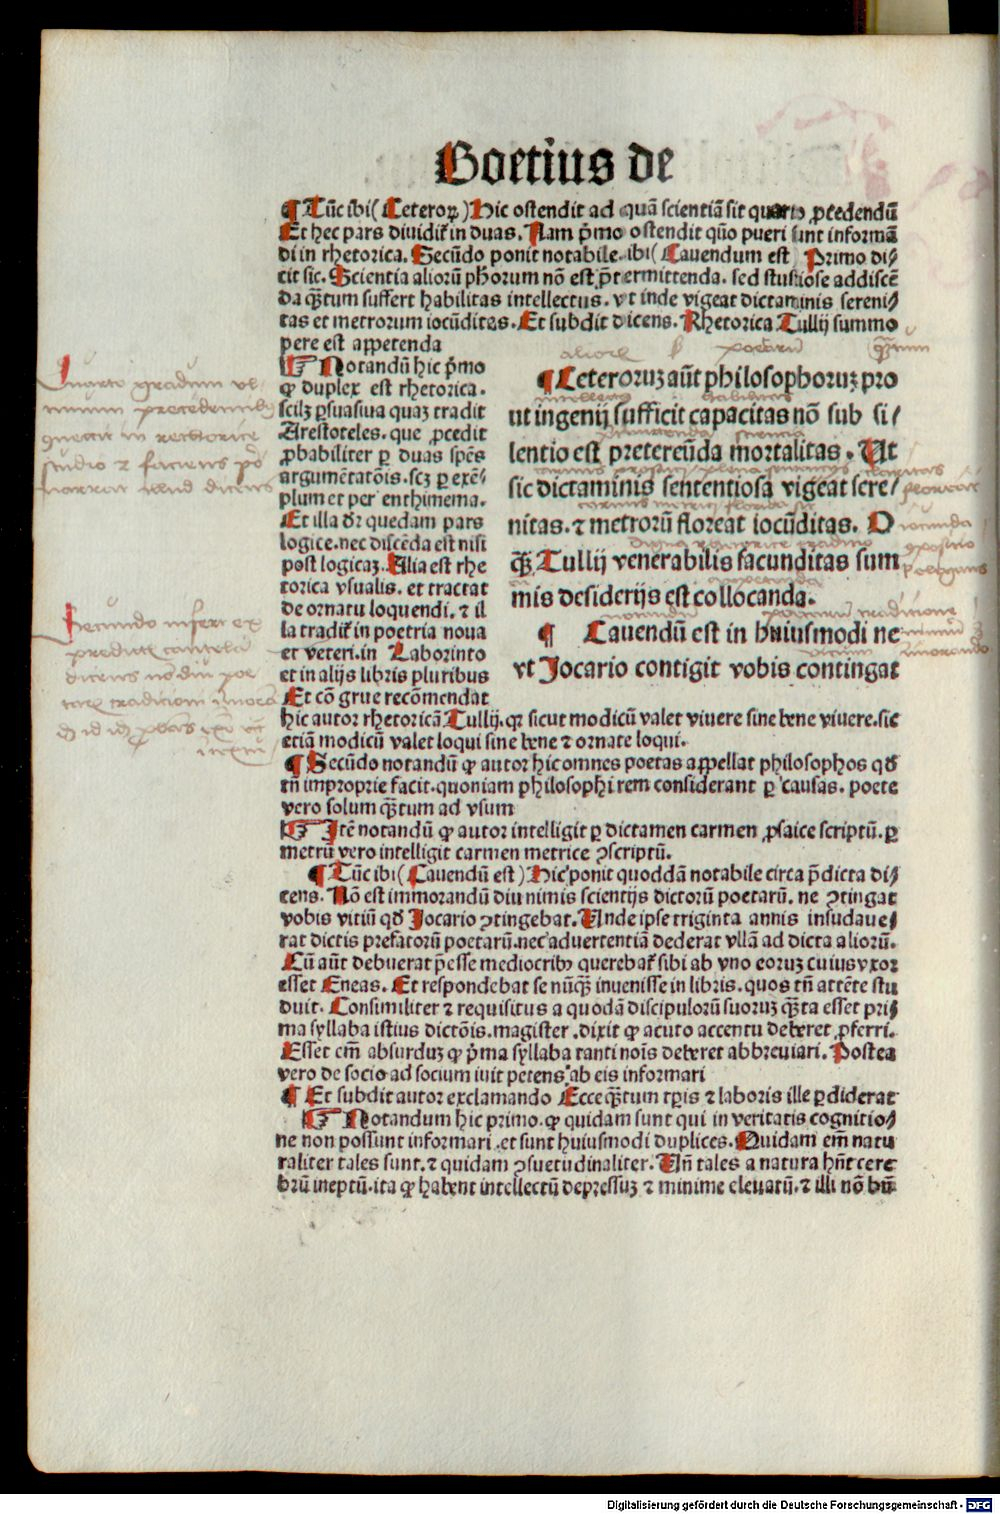 Boetius de
¶ Tūc ibi (Ceteroꝝ) Hic ostendit ad quā scientiā sit quarto ꝓcedendū
Et hec pars diuidit͛ in duas. Nam p̄mo ostendit quō pueri sint informā
di in rhetorica. Secūdo ponit notabile ibi (Cauendum est) Primo di⸗
cit sic. Scientia aliorū phorum nō est p̄termittenda. sed studiose addiscē
da q̄ꝫtum suffert habilitas intellectus. vt inde vigeat dictaminis sereni⸗
tas et metrorum iocūditas. Et subdit dicens. Rhetorica Tullij summo
pere est appetenda
¶ Notandū hic p̄mo
ꝙ duplex est rhetorica.
scilꝫ ꝑsuasiua quaꝫ tradit
Arestoteles. que ꝓcedit
ꝓbabiliter ꝑ duas spēs
argumētatōis. scꝫ ꝑ exē⸗
plum et per enthimema.
Et illa dr̄ quedam pars
logice. nec discēda est nisi
post logicaꝫ. Alia est rhe
torica vsualis. et tractat
de ornatu loquendi. ⁊ il
la tradit͛ in poetria noua
et veteri. in Laborinto
et in alijs libris pluribus
Et cōgrue recōmendat
¶ Ceteroruꝫ aūt philosophoruꝫ pro
ut ingenij sufficit capacitas nō sub si⸗
lentio est pretereūda mortalitas. Ut
sic dictaminis sententiosa vigeat sere⸗
nitas. ⁊ metrorū floreat iocūditas. O
q̄ꝫ Tullij venerabilis facunditas sum
mis desiderijs est collocanda.
¶ Cauendū est in huiusmodi ne
vt Jocario contigit vobis contingat
hic autor rhetoricā Tullij. qꝛ sicut modicū valet viuere sine bene viuere. sic
etiā modicū valet loqui sine bene ⁊ ornate loqui.
¶ Secūdo notandū ꝙ autor hic omnes poetas appellat philosophos qd̄
tn̄ improprie facit. quoniam philosophi rem considerant ꝑ causas. poete
vero solum q̄ꝫtum ad vsum
¶ Itē notandū ꝙ autor intelligit ꝑ dictamen carmen ꝓsaice scriptū. ꝑ
metrū vero intelligit carmen metrice ꝯscriptū.
¶ Tūc ibi (Cauendū est) Hic ponit quoddā notabile circa p̄dicta di⸗
cens. Nō est immorandū diu nimis scientijs dictorū poetarū. ne ꝯtingat
vobis vitiū qd̄ Jocario ꝯtingebat. Unde ipse triginta annis insudaue⸗
rat dictis prefatorū poetarū. nec aduertentiā dederat vllā ad dicta aliorū.
Cū aūt debuerat p̄esse mediocribꝰ querebat͛ sibi ab vno eoruꝫ cuius vxor
esset Eneas. Et respondebat se nūq̄ꝫ inuenisse in libris. quos tn̄ attēte stu
duit. Consimiliter ⁊ requisitus a quodā discipulorū suoruꝫ q̄ꝫta esset pri⸗
ma syllaba istius dictōis. magister. dixit ꝙ acuto accentu deberet ꝓferri.
Esset em̄ absurduꝫ ꝙ p̄ma syllaba tanti nois̄ deberet abbreuiari. Postea
vero de socio ad socium iuit petens ab eis informari
¶ Et subdit autor exclamando Ecce q̄ꝫtum tp̄is ⁊ laboris ille ꝑdiderat
¶ Notandum hic primo. ꝙ quidam sunt qui in veritatis cognitio⸗
ne non possunt informari. et sunt huiusmodi duplices. Quidam em̄ natu
raliter tales sunt. ⁊ quidam ꝯsuetudinaliter. Un̄ tales a natura hn̄t cere
brū ineptū. ita ꝙ habent intellectū depressuꝫ ⁊ minime eleuatū. ⁊ illi nō
Quarto gradum
studio ⁊ faciens
narrat illud dicens
Secundo infert ex
dicens
Digitalisierung gefördert durch die Deutsche Forschungsgemeinschaft - DFG